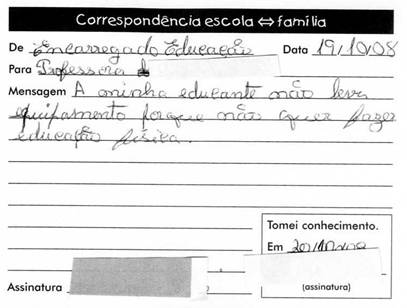 Correspondência escola ⇔ família
De Encarregado Educação Data 19/10/08
Para Professora
Mensagem A minha educante não leva
equipamento porque não quer fazer
educação física.
Tomei conhecimento.
Em 20/10/08
Assinatura
(assinatura)